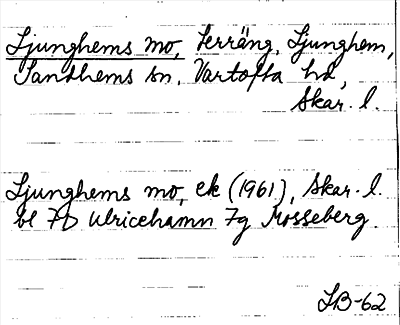 Ljunghems mo, terräng, Ljunghem,
Sandhems sn, Vartofta hd,
Skar. l.
Ljunghems mo, ek (1961), Skar. l.
bl 7D Ulricehamn 7g Mosseberg.
LB-62